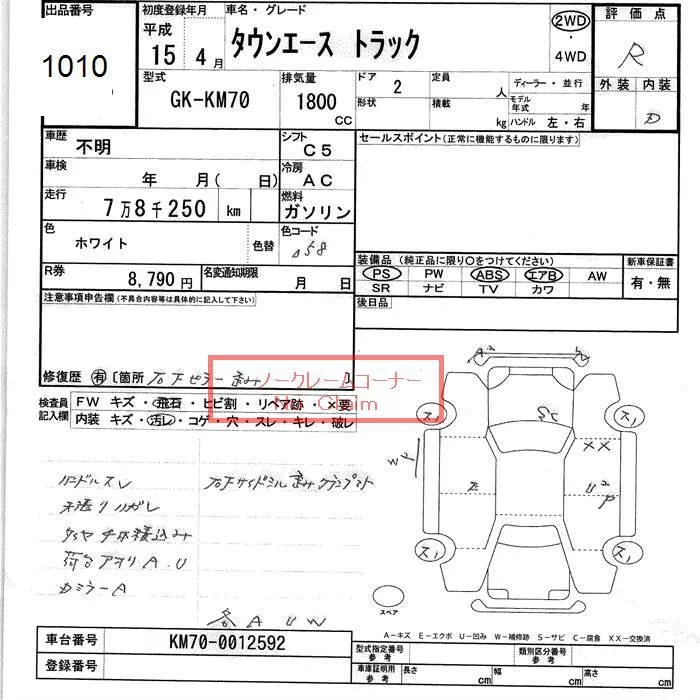 出品番号 初度登録年月 車名・グレード 評価点
1010 平成 15 4月 タウンエース トラック 2WD 4WD R
型式 GK-KM70 排気量 1800 CC ドア 2 定員 人 ディーラー・並行 外装 内装
形状 積載 kg モデル年式 年 ハンドル 左・右 D
車歴 不明 シフト C5 セールスポイント(正常に機能するものに限ります)
車検 年 月( 日) 冷房 AC
走行 7万8千250 km 燃料 ガソリン
色 ホワイト 色替 色コード 058
装備品(純正品に限り○をつけてください) 新車保証書
R券 8,790円 名変通知期限 月 日 PS PW ABS エアB AW 有・無
SR ナビ TV カワ
注意事項申告欄(不具合内容等は具体的に記入して下さい) 後日品
修復歴 有 〔箇所 右Fピラー歪み 〕
ノークレームコーナー
No Claim
検査員記入欄 FW キズ・飛石・ヒビ割・リペア跡・×要
内装 キズ・汚レ・コゲ・穴・スレ・キレ・破レ
ハンドルスレ 右Fサイドシル歪み
ハガレ
タイヤ 積込み
荷台アオリ A.U
カミラーA
各 A U W
A2 A2
SC
ス1 ス1
XX
W P
E U2 P
ス1 ス1
スペア
A－キズ E－エクボ U－凹み W－補修跡 S－サビ C－腐食 XX－交換済
車台番号 KM70-0012592 型式指定番号 参考 類別区分番号 参考
登録番号 車庫証明用 参考 長さ cm 幅 cm 高さ cm